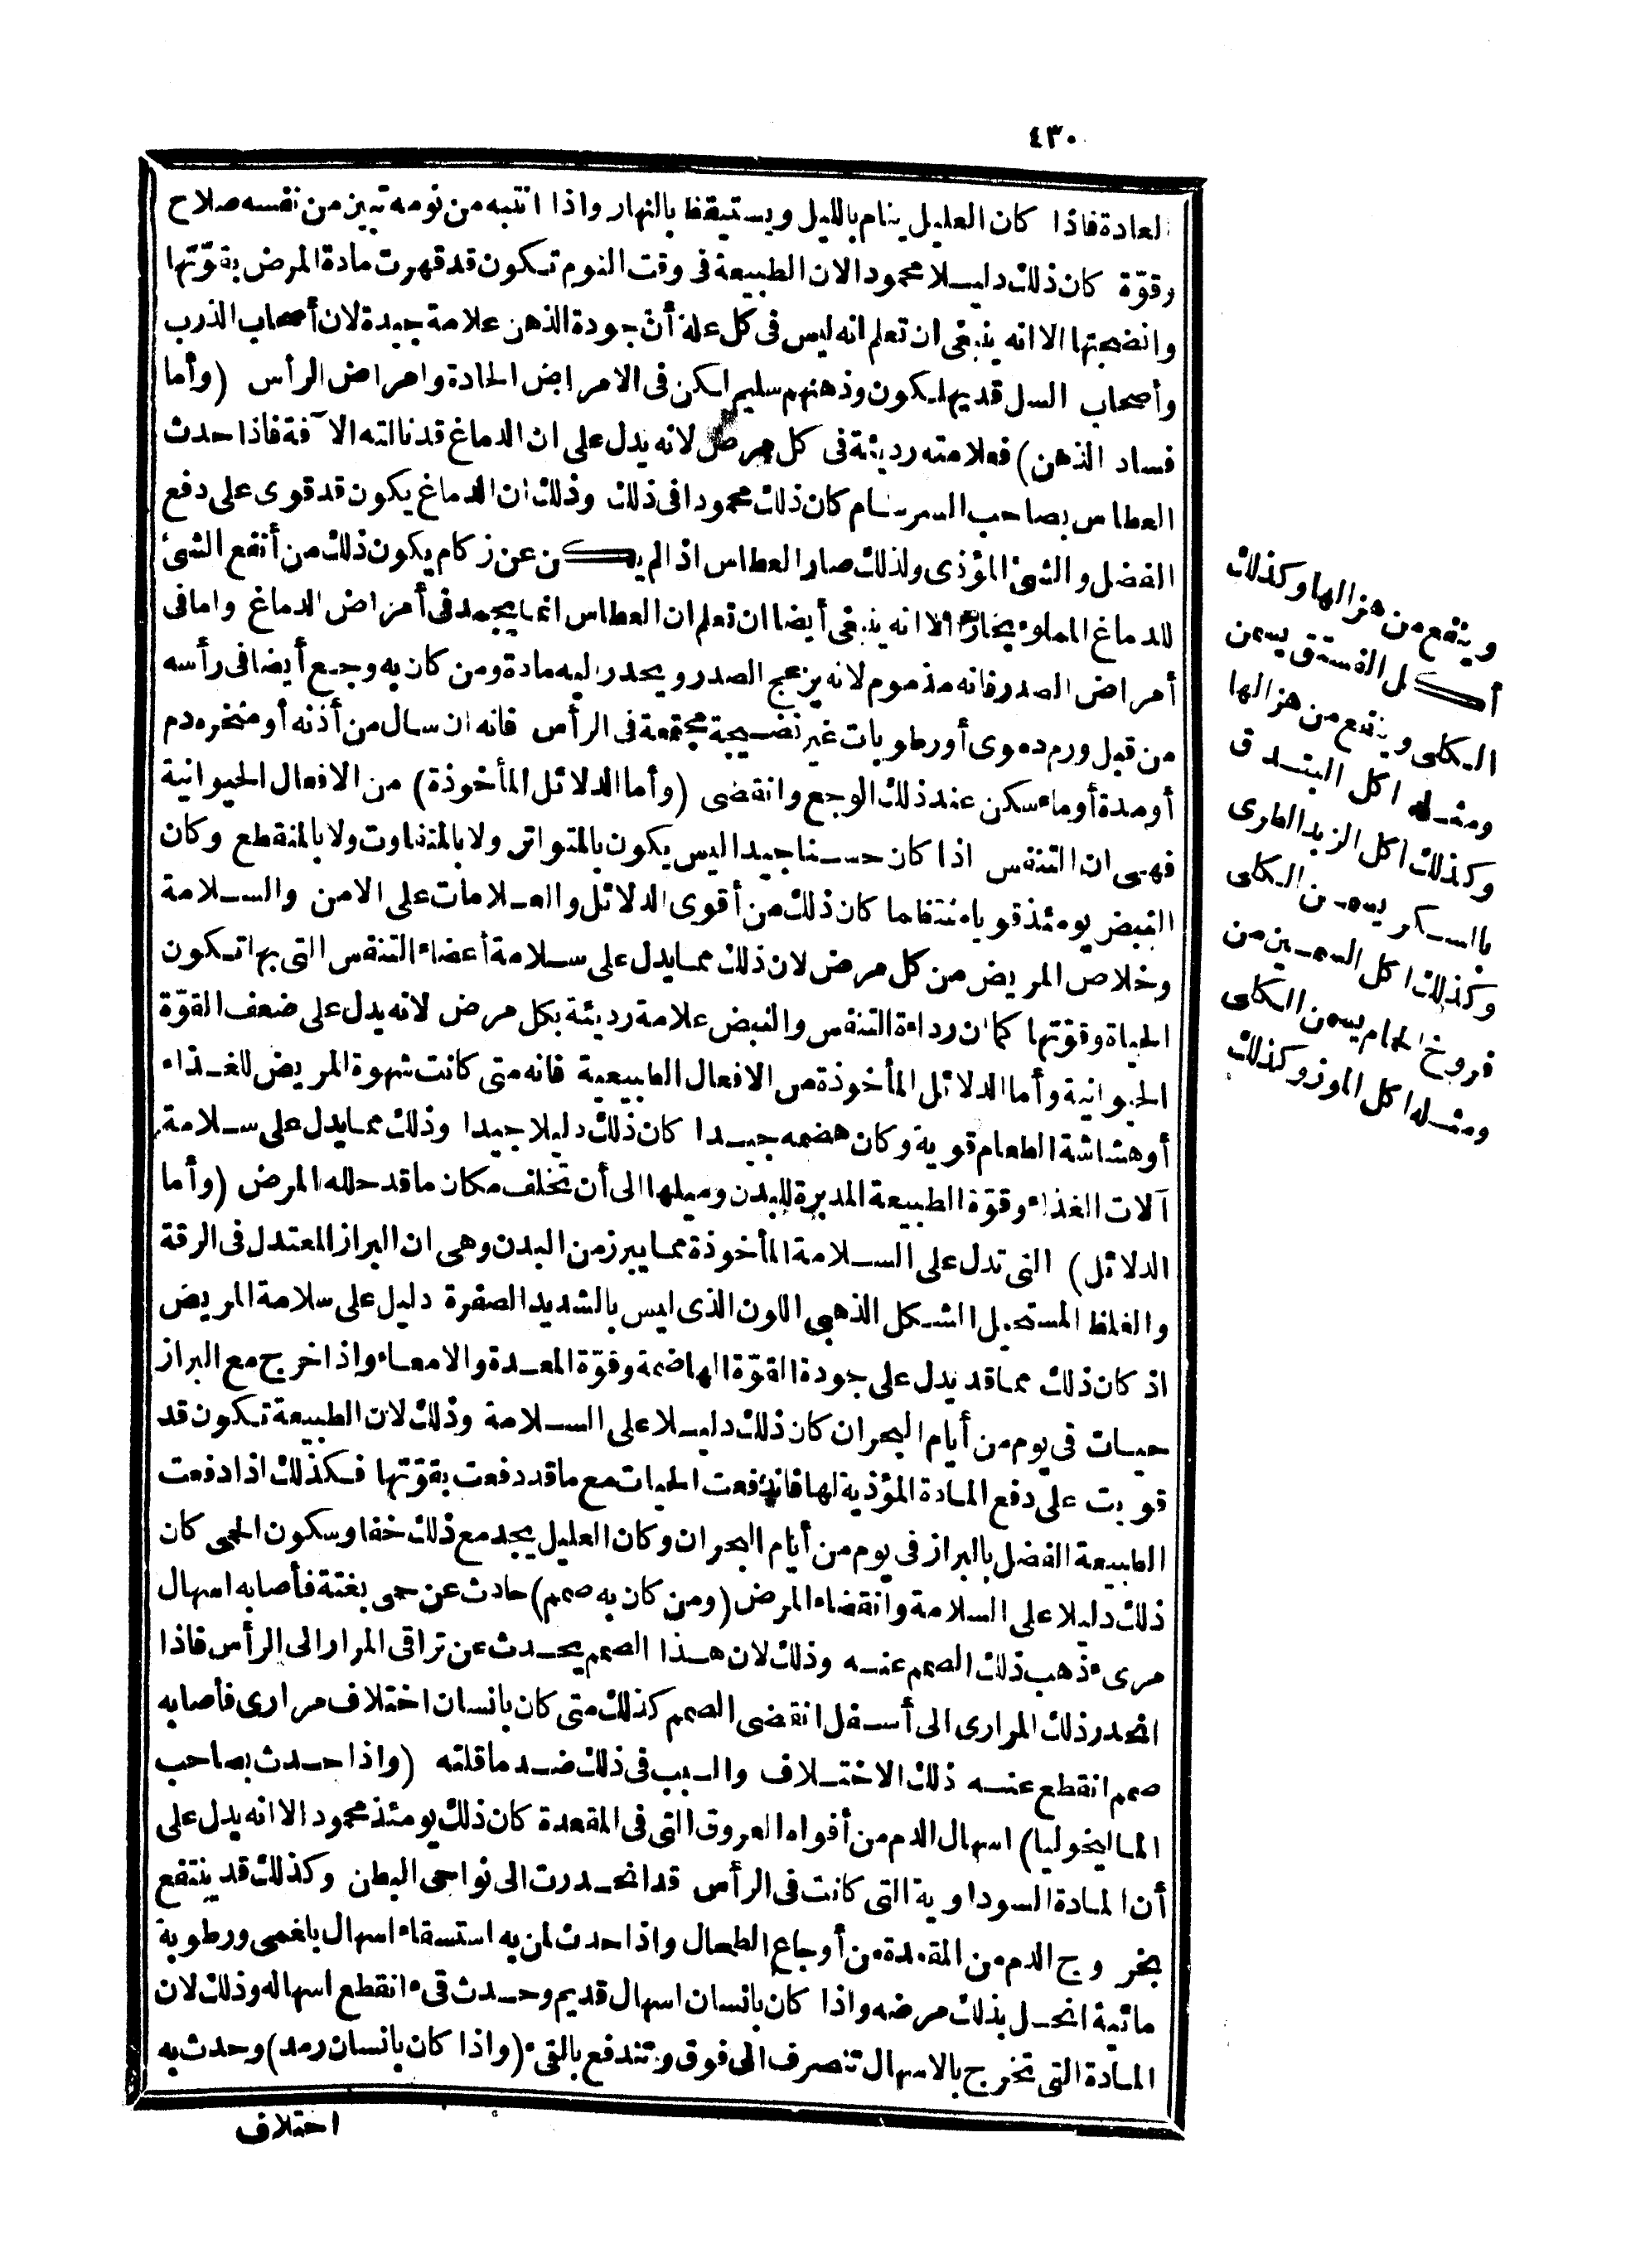 ٤٣٠
العادة فاذا كان العليل ينام بالليل ويستيقظ بالنهار واذا انتبه من نومه تبين من نفسه صلاح
وقوّة كان ذلك دليلا محمودا لان الطبيعة فى وقت النوم تكون قد قهرت مادة المرض بقوّتها
وانضجتها الا انه ينبغى ان تعلم انه ليس فى كل علة أن جودة الذهن علامة جيدة لان أصحاب الذرب
وأصحاب السل قد يهلكون وذهنهم سليم لكن فى الامراض الحادة وامراض الرأس (وأما
فساد الذهن) فعلامته رديئة فى كل مرض لانه يدل على ان الدماغ قد نالته الآفة فاذا حدث
العطاس بصاحب السرسام كان ذلك محمودا فى ذلك وذلك ان الدماغ يكون قد قوى على دفع
الفضل والشئ المؤذى ولذلك صار العطاس اذا لم يكن عن زكام يكون ذلك من أنفع الشئ
للدماغ المملوء بخارا الا انه ينبغى أيضا ان تعلم ان العطاس انما يحمد فى أمراض الدماغ واما فى
أمراض الصدر فانه مذموم لانه يزعج الصدر ويحدر اليه مادة ومن كان به وجع أيضا فى رأسه
من قبل ورم دموى أو رطوبات غير نضيجة مجتمعة فى الرأس فانه ان سال من أذنه أو منخره دم
أو مدة أو ماء سكن عند ذلك الوجع وانقضى (وأما الدلائل المأخوذة) من الافعال الحيوانية
فهى ان التنفس اذا كان حسنا جيدا ليس يكون بالمتواتر ولا بالمتفاوت ولا بالمنقطع وكان
النبض يومئذ قويا منتظما كان ذلك من أقوى الدلائل والعلامات على الامن والسلامة
وخلاص المريض من كل مرض لان ذلك مما يدل على سلامة أعضاء التنفس التى بها تكون
الحياة وقوّتها كما ان رداءة التنفس والنبض علامة رديئة بكل مرض لانه يدل على ضعف القوّة
الحيوانية وأما الدلائل المأخوذة من الافعال الطبيعية فانه متى كانت شهوة المريض للغذاء
أو هشاشة الطعام قوية وكان هضمه جيدا كان ذلك دليلا جيدا وذلك مما يدل على سلامة
آلات الغذاء وقوّة الطبيعة المدبرة للبدن وميلها الى أن تخلف مكان ما قد حلله المرض (وأما
الدلائل) التى تدل على السلامة المأخوذة مما يبرز من البدن وهى ان البراز المعتدل فى الرقة
والغلظ المستحيل الشكل الذهبى اللون الذى ليس بالشديد الصفرة دليل على سلامة المريض
اذ كان ذلك مما قد يدل على جودة القوّة الهاضمة وقوّة المعدة والامعاء واذا خرج مع البراز
حيات فى يوم من أيام البحران كان ذلك دليلا على السلامة وذلك لان الطبيعة تكون قد
قويت على دفع المادة المؤذية لها فاندفعت الحيات مع ما قد دفعت بقوّتها فكذلك اذا دفعت
الطبيعة الفضل بالبراز فى يوم من أيام البحران وكان العليل يجد مع ذلك خفا وسكون الحمى كان
ذلك دليلا على السلامة وانقضاء المرض (ومن كان به صمم) حادث عن حمى بغتة فأصابه اسهال
مرى ء ذهب ذلك الصمم عنه وذلك لان هذا الصمم يحدث عن تراقى المرار الى الرأس فاذا
انحدر ذلك المرارى الى أسفل انقضى الصمم كذلك متى كان بانسان اختلاف مرارى فأصابه
صمم انقطع عنه ذلك الاختلاف والسبب فى ذلك ضد ما قلته (واذا حدث بصاحب
الماليخوليا) اسهال الدم من أفواه العروق التى فى المقعدة كان ذلك يومئذ محمودا لانه يدل على
أن المادة السوداوية التى كانت فى الرأس قد انحدرت الى نواحى البطن وكذلك قد ينتفع
بخروج الدم من المقعدة من أوجاع الطحال واذا حدث لمن به استسقاء اسهال بلغمى ورطوبة
مائية انحل بذلك مرضه واذا كان بانسان اسهال قديم وحدث قىء انقطع اسهاله وذلك لان
المادة التى تخرج بالاسهال تنصرف الى فوق وتندفع بالقىء (واذا كان بانسان رمد) وحدث به
اختلاف
وينفع من هزالها وكذلك
أكل الفستق يسمن
الكلى وينفع من هزالها
ومثله اكل البندق
وكذلك اكل الزبد الطرى
بالسكر يسمن الكلى
وكذلك اكل السمين من
فروخ الحمام يسمن الكلى
ومثله اكل الموز وكذلك